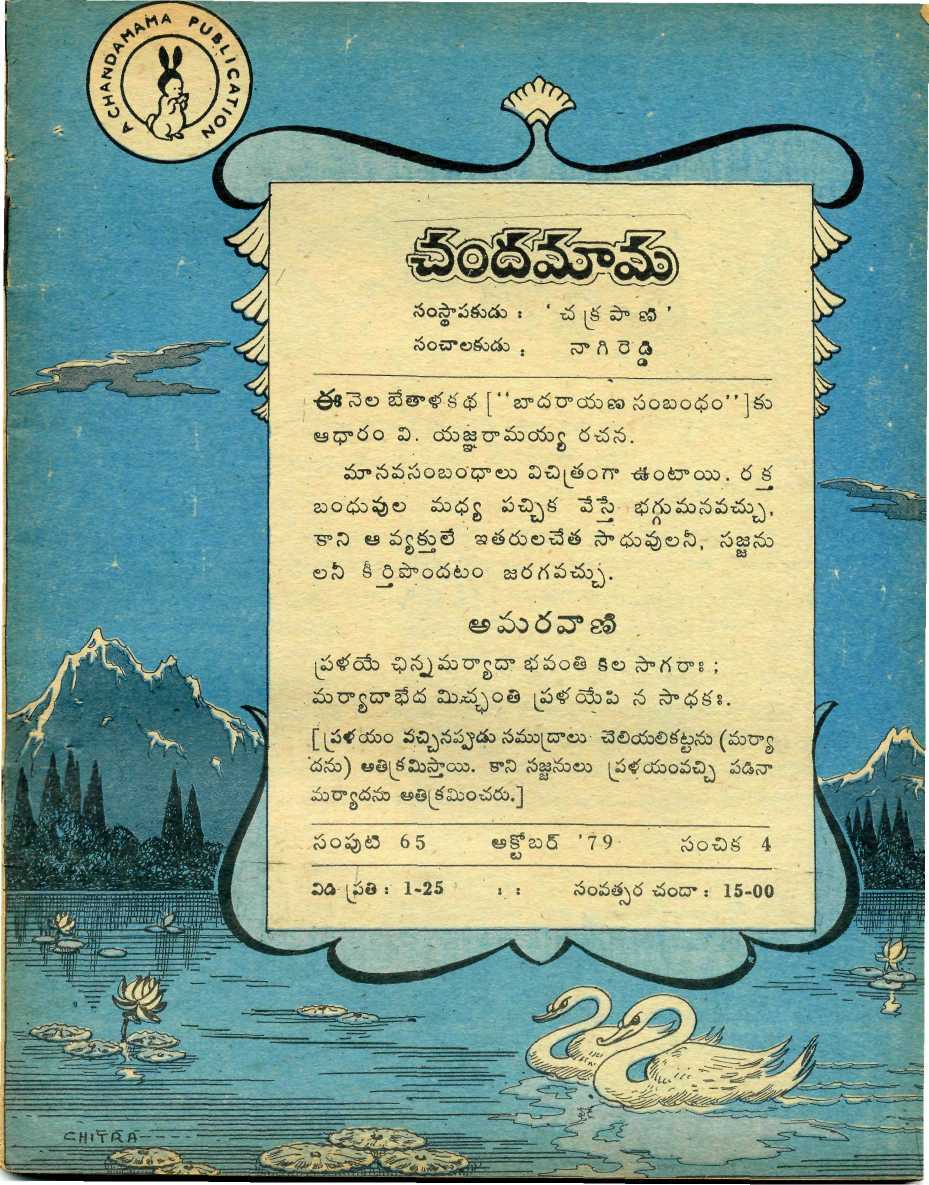 A CHANDAMAMA PUBLICATION
చందమామ
సంస్థాపకుడు : ' చక్రపాణి '
సంచాలకుడు : నాగిరెడ్డి
ఈ నెల బేతాళకథ [''బాదరాయణ సంబంధం'']కు
ఆధారం వి. యజ్ఞరామయ్య రచన.
మానవసంబంధాలు విచిత్రంగా ఉంటాయి. రక్త
బంధువుల మధ్య పచ్చిక వేస్తే భగ్గుమనవచ్చు,
కాని ఆ వ్యక్తులే ఇతరులచేత సాధువులనీ, సజ్జను
లనీ కీర్తిపొందటం జరగవచ్చు.
అమరవాణి
ప్రళయే ఛిన్నమర్యాదా భవంతి కిల సాగరాః ;
మర్యాదాభేద మిచ్ఛంతి ప్రళయేపి న సాధకః.
[ప్రళయం వచ్చినప్పుడు సముద్రాలు చెలియలికట్టను (మర్యా
దను) అతిక్రమిస్తాయి. కాని సజ్జనులు ప్రళయంవచ్చి పడినా
మర్యాదను అతిక్రమించరు.]
సంపుటి 65 అక్టోబర్ '79 సంచిక 4
విడి ప్రతి : 1-25 : : సంవత్సర చందా : 15-00
CHITRA